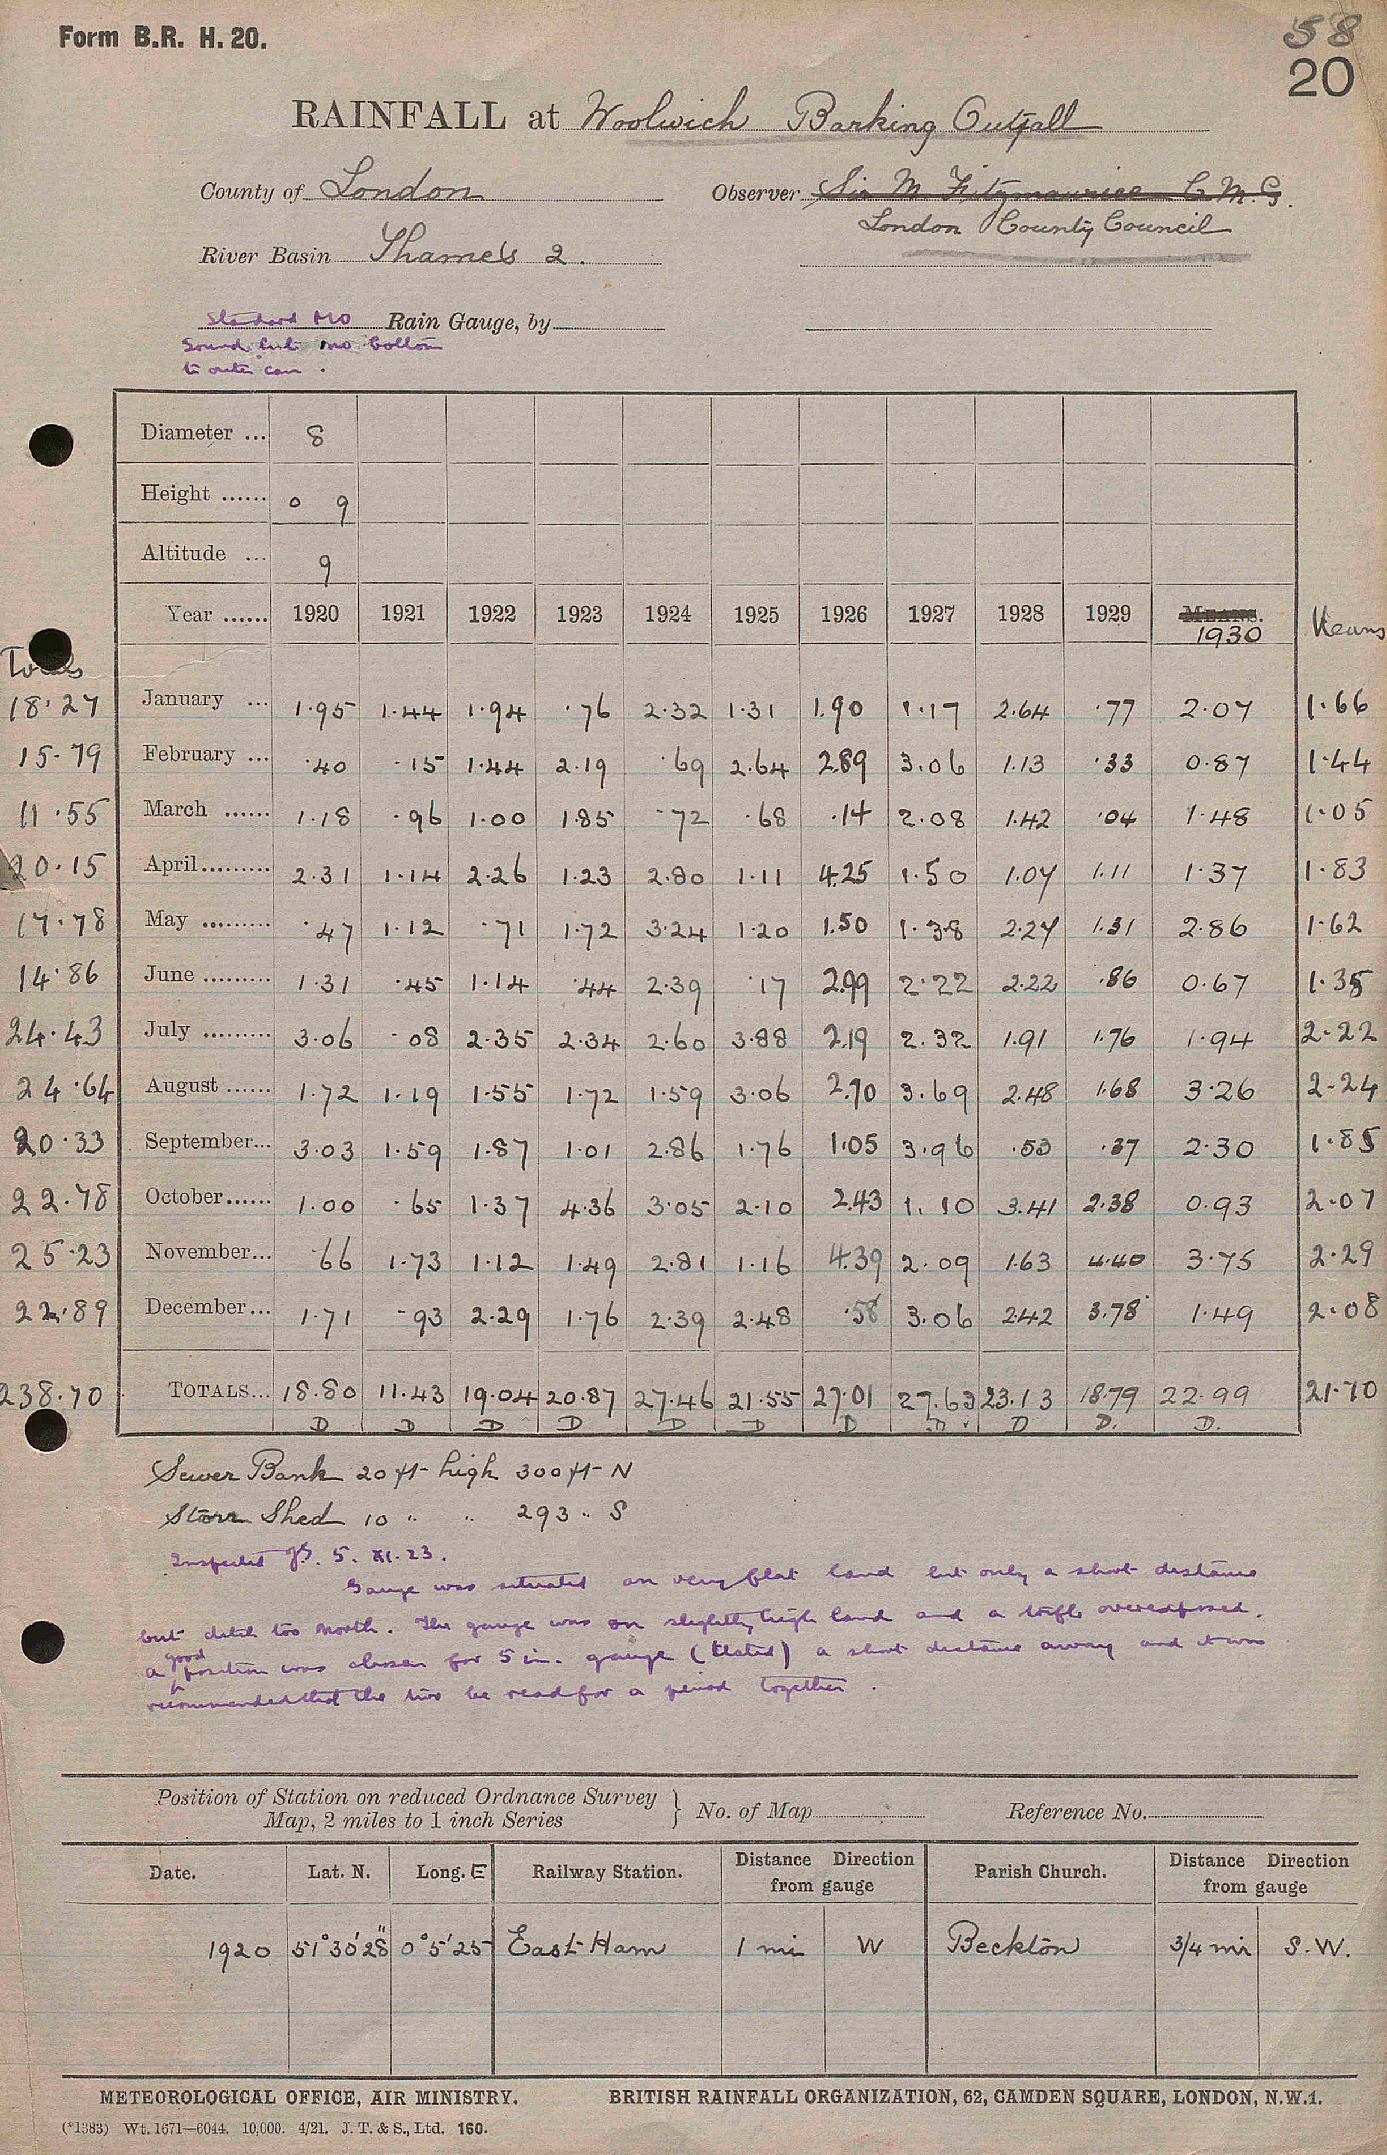 Form B.R. H. 20.
58
20
RAINFALL at Woolwich Barking Outfall
County of London Observer Sir M Fitzmaurice C.M.G.
London County Council
River Basin Thames 2.
Standard MO Rain Gauge, by
Sound but no bottom
to outer can.
Diameter ... 8
Height ...... 0 9
Altitude ... 9
Year ...... 1920 1921 1922 1923 1924 1925 1926 1927 1928 1929 MEANS. 1930 Means
Totals
18.27 January ... 1.95 1.44 1.94 .76 2.32 1.31 1.90 1.17 2.64 .77 2.07 1.66
15.79 February ... .40 .15 1.44 2.19 .69 2.64 2.89 3.06 1.13 .33 0.87 1.44
11.55 March ...... 1.18 .96 1.00 1.85 .72 .68 .14 2.08 1.42 .04 1.48 1.05
20.15 April......... 2.31 1.14 2.26 1.23 2.80 1.11 4.25 1.50 1.07 1.11 1.37 1.83
17.78 May ......... .47 1.12 .71 1.72 3.24 1.20 1.50 1.38 2.27 1.31 2.86 1.62
14.86 June ......... 1.31 .45 1.14 .44 2.39 .17 2.99 2.22 2.22 .86 0.67 1.35
24.43 July ......... 3.06 .08 2.35 2.34 2.60 3.88 2.19 2.32 1.91 1.76 1.94 2.22
24.64 August ...... 1.72 1.19 1.55 1.72 1.59 3.06 2.70 3.69 2.48 1.68 3.26 2.24
20.33 September... 3.03 1.59 1.87 1.01 2.86 1.76 1.05 3.96 .53 .37 2.30 1.85
22.78 October...... 1.00 .65 1.37 4.36 3.05 2.10 2.43 1.10 3.41 2.38 0.93 2.07
25.23 November... .66 1.73 1.12 1.49 2.81 1.16 4.39 2.09 1.63 4.40 3.75 2.29
22.89 December... 1.71 .93 2.29 1.76 2.39 2.48 .58 3.06 2.42 3.78 1.49 2.08
238.70 TOTALS... 18.80 11.43 19.04 20.87 27.46 21.55 27.01 27.63 23.13 18.79 22.99 21.70
D D D D D D D D. D D. D.
Sewer Bank 20 ft high 300 ft N
Store Shed 10 " " 293 " S
Inspected 5. XI. 23.
Gauge was situated on very flat land but only a short distance
but ditch too North. The gauge was on slightly high land and a trifle overexposed.
a good position was chosen for 5 in. gauge (tested) a short distance away and it was
recommended that the two be read for a period together.
Position of Station on reduced Ordnance Survey
Map, 2 miles to 1 inch Series } No. of Map Reference No.
Date. Lat. N. Long. E Railway Station. Distance Direction from gauge Parish Church. Distance Direction from gauge
1920 51°30'28" 0°5'25 East Ham 1 mi W Beckton 3/4 mi S.W.
METEOROLOGICAL OFFICE, AIR MINISTRY. BRITISH RAINFALL ORGANIZATION, 62, CAMDEN SQUARE, LONDON, N.W.1.
(*1383) Wt. 1671—6044. 10,000. 4/21. J. T. & S., Ltd. 160.